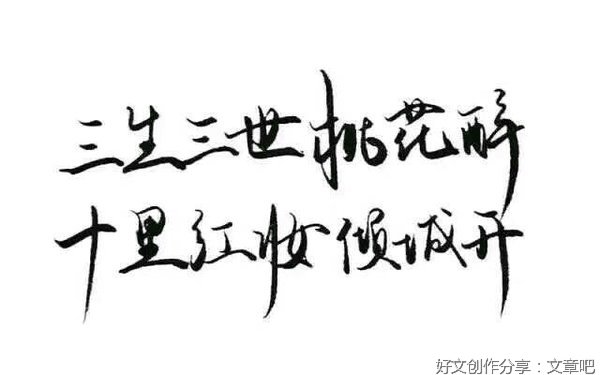 三生三世桃花醉
十里红妆倾城开
好文创作分享：文章吧